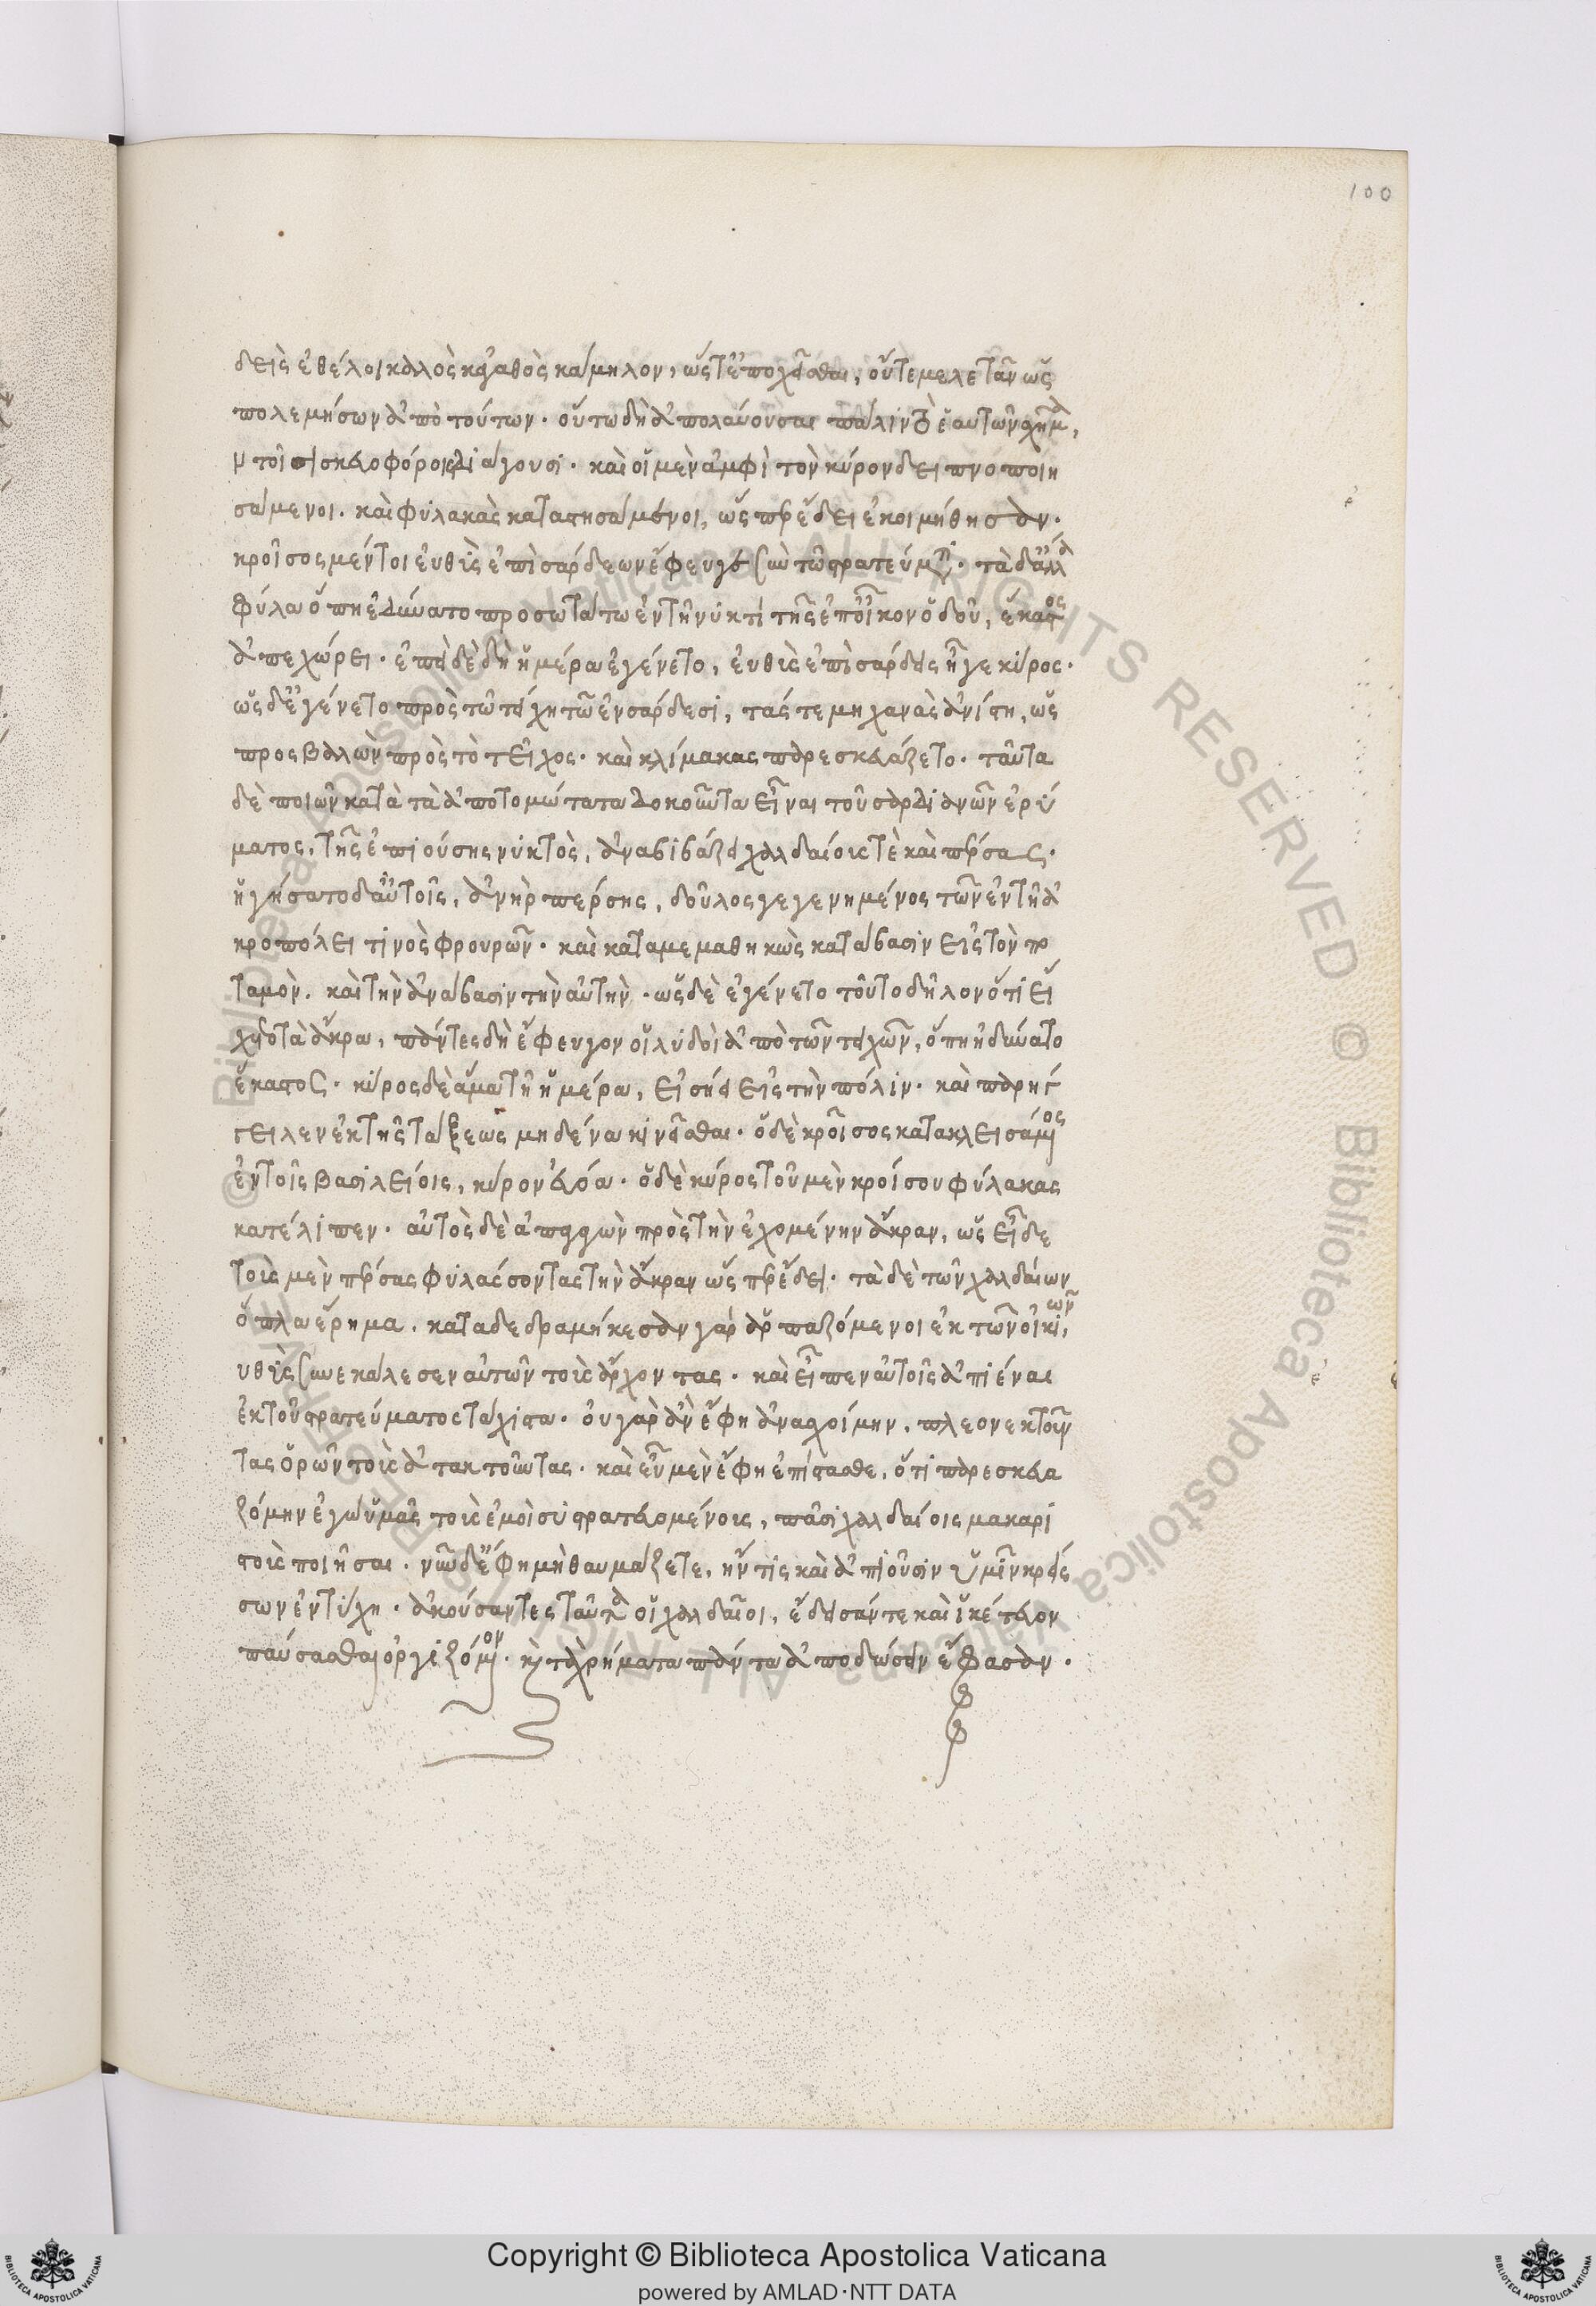 100
δεὶς ἐθέλοι καλὸς κἀγαθὸς κάμηλον, ὥστ' ἐποχεῖσθαι, οὔτε μελετᾶν ὡς
πολεμήσων ἀπὸ τούτων. οὕτω δὴ ἀπολαβοῦσαι πάλιν τὸ ἑαυτῶν σχῆμα,
ν τοῖς σκευοφόροις διάγουσι. καὶ οἱ μὲν ἀμφὶ τὸν κύρον δειπνοποιη
σάμενοι. καὶ φύλακὰς καταστησάμενοι, ὥσπερ ἔδει ἐκοιμήθησαν.
κροῖσος μέντοι εὐθὺς ἐπὶ σάρδεων ἔφευγε σὺν τῷ στρατεύματι. τὰ δ' ἄλλα
φύλα ὅπη ἐδύνατο προσωτάτω ἐν τῇ νυκτὶ τῆς ἐπ' οἶκον ὁδοῦ, ἕκαστος
ἀπεχώρει. ἐπεὶ δὲ δὴ ἡμέρα ἐγένετο, εὐθὺς ἐπὶ σάρδεις ἦγε κύρος.
ὡς δ' ἐγένετο πρὸς τῷ τείχη τῷ ἐν σάρδεσι, τάς τε μηχανὰς ἀνίστη, ὡς
προσβαλὼν πρὸς τὸ τεῖχος. καὶ κλίμακας παρεσκευάζετο. ταῦτα
δὲ ποιῶν κατὰ τὰ ἀποτομώτατα δοκοῦντα εἶναι τοῦ σαρδιανῶν ἐρύ
ματος, τῆς ἐπιούσης νυκτὸς, ἀναβιβάζει χαλδαίους τὲ καὶ πέρσας.
ἡγήσατο δ' αὐτοῖς, ἀνὴρ πέρσης, δοῦλος γεγενημένος τῶν ἐν τῇ ἀ
κροπόλει τινὸς φρουρῶν. καὶ καταμεμαθηκὼς κατάβασιν εἰς τὸν πο
ταμὸν. καὶ τὴν ἀνάβασιν τὴν αὐτὴν. ὡς δὲ ἐγένετο τοῦτο δῆλον ὅτι εἴ
χετο τὰ ἄκρα, πάντες δὴ ἔφευγον οἱ λυδοὶ ἀπὸ τῶν τειχῶν, ὅπη ἠδύνατο
ἕκαστος. κύρος δὲ ἅμα τῇ ἡμέρα, εἰσήει εἰς τὴν πόλιν. καὶ παρήγ
γειλεν ἐκ τῆς τάξεως μηδένα κινεῖσθαι. ὁ δὲ κροῖσος κατακλεισάμενος
ἐν τοῖς βασιλείοις, κύρον ἐβόα. ὁ δὲ κύρος τοῦ μὲν κροίσου φύλακας
κατέλιπεν. αὐτὸς δὲ ἀπαγαγὼν πρὸς τὴν ἐχομένην ἄκραν, ὡς εἶδε
τοὺς μὲν πέρσας φυλάσσοντας τὴν ἄκραν ὥσπερ ἔδει. τὰ δὲ τῶν χαλδαίων
ὅπλα ἔρημα. καταδεδραμήκεσαν γὰρ ἁρπαζόμενοι ἐκ τῶν οἰκιῶν,
υθὺς συνεκάλεσεν αὐτῶν τοὺς ἄρχοντας. καὶ εἶπεν αὐτοῖς ἀπιέναι
ἐκ τοῦ στρατεύματος τάχιστα. οὐ γὰρ ἂν ἔφη ἀνασχοίμην, πλεονεκτοῦν
τας ὁρῶν τοὺς ἀτακτοῦντας. καὶ εὖ μὲν ἔφη ἐπίστασθε, ὅτι παρεσκευα
ζόμην ἐγὼ ὑμᾶς τοὺς ἐμοὶ συστρατευομένους, πᾶσι χαλδαίοις μακαρι
στοὺς ποιῆσαι. νῦν δ' ἔφη μὴ θαυμάζετε, ἤν τις καὶ ἀπιοῦσιν ὑμῖν κρείσ
σων ἐντύχη. ἀκούσαντες ταῦτα οἱ χαλδαῖοι, ἔδεισάν τε καὶ ἱκέτευον
παύσασθαι ὀργιζόμενον. καὶ τὰ χρήματα πάντα ἀποδώσειν ἔφασαν.
Copyright © Biblioteca Apostolica Vaticana
powered by AMLAD·NTT DATA